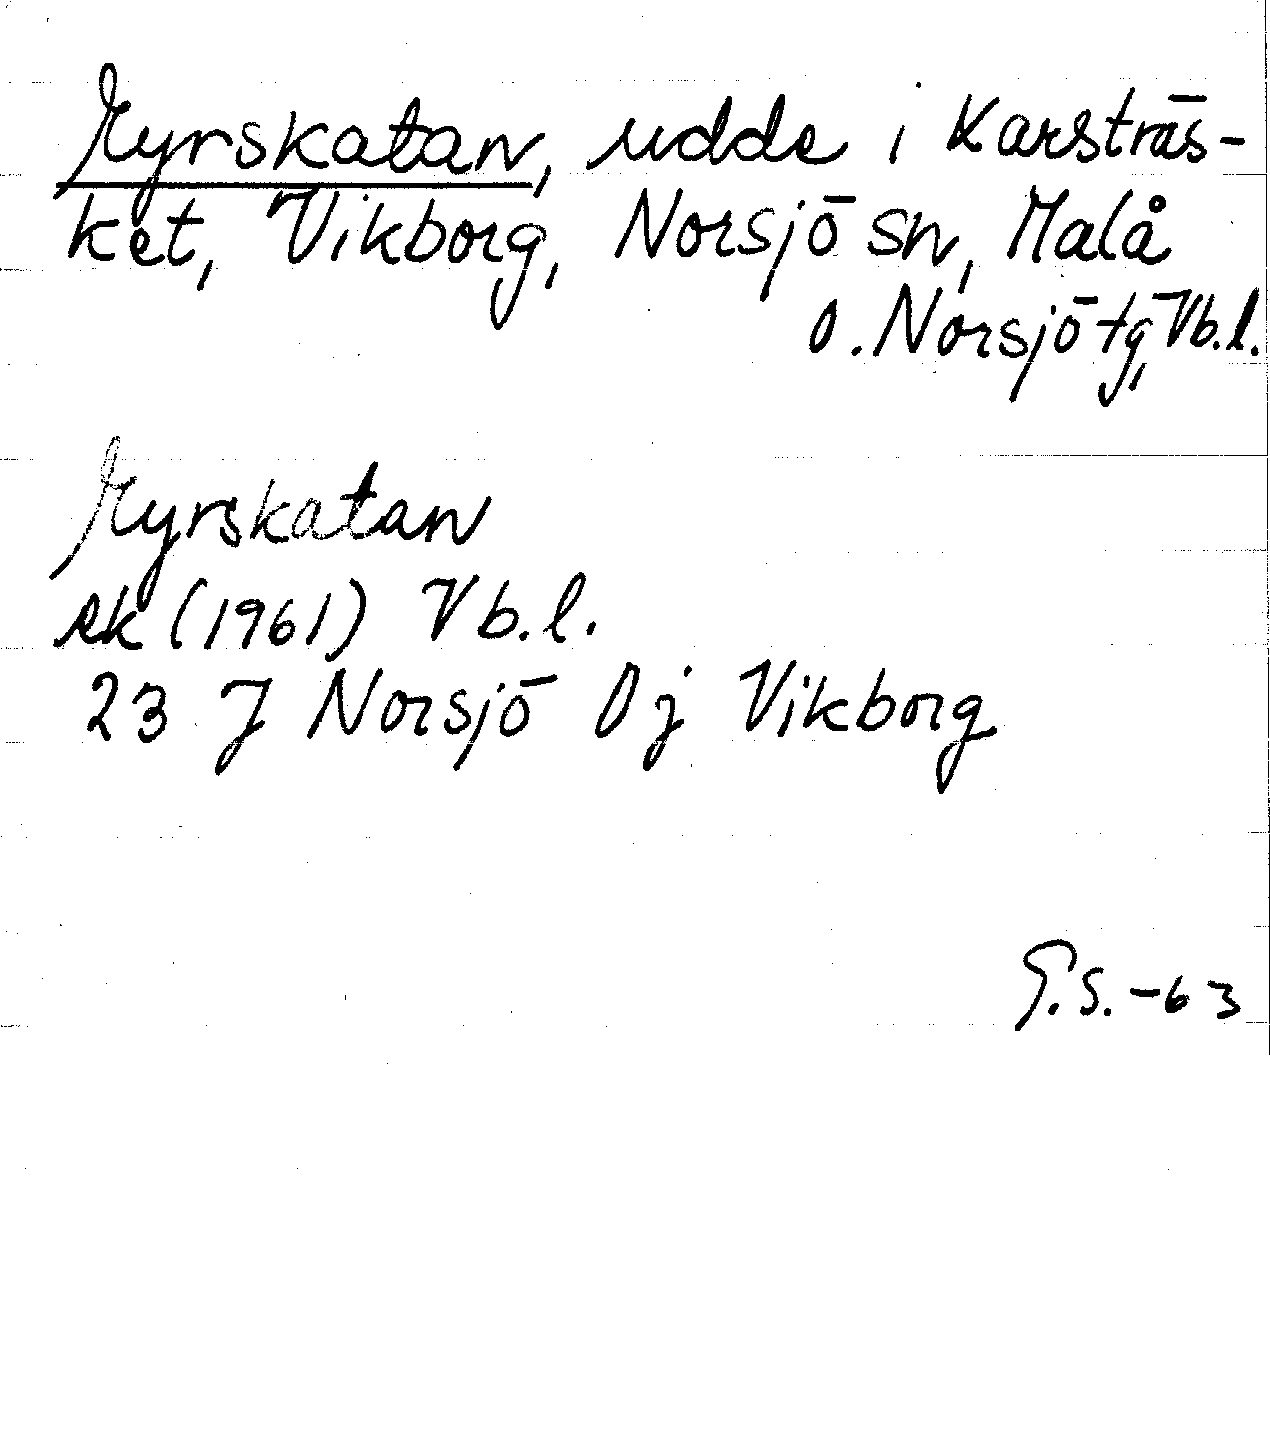 Myrskatan, udde i Karsträs-
ket, Vikborg, Norsjö sn, Malå
o. Norsjö tg, Vb.l.
Myrskatan
ek (1961) Vb.l.
23 J Norsjö 0j Vikborg
G.S. -63